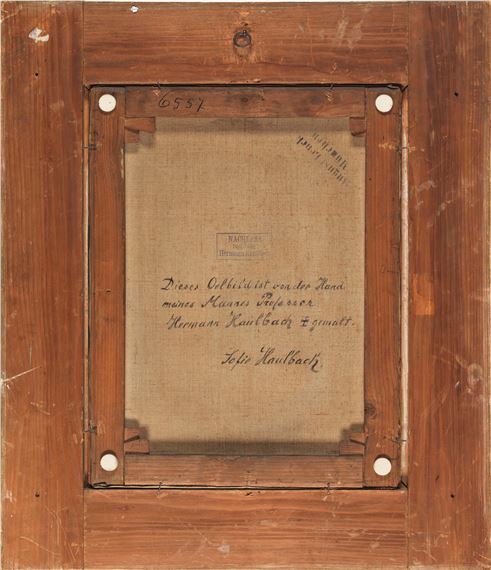 6557
NACHLASS
Dieses Oelbild ist von der Hand
meines Mannes Professor
Hermann Kaulbach ‡ gemalt.
Sofie Kaulbach.